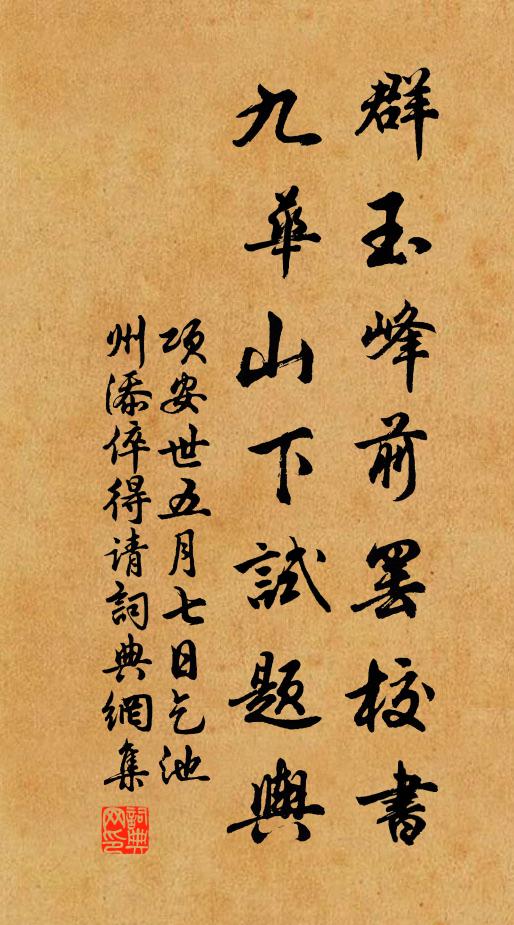 群玉峰前罢校書
九華山下試題輿
项安世五月七日乞池
州添倅得请詞典網集
詞典
网印